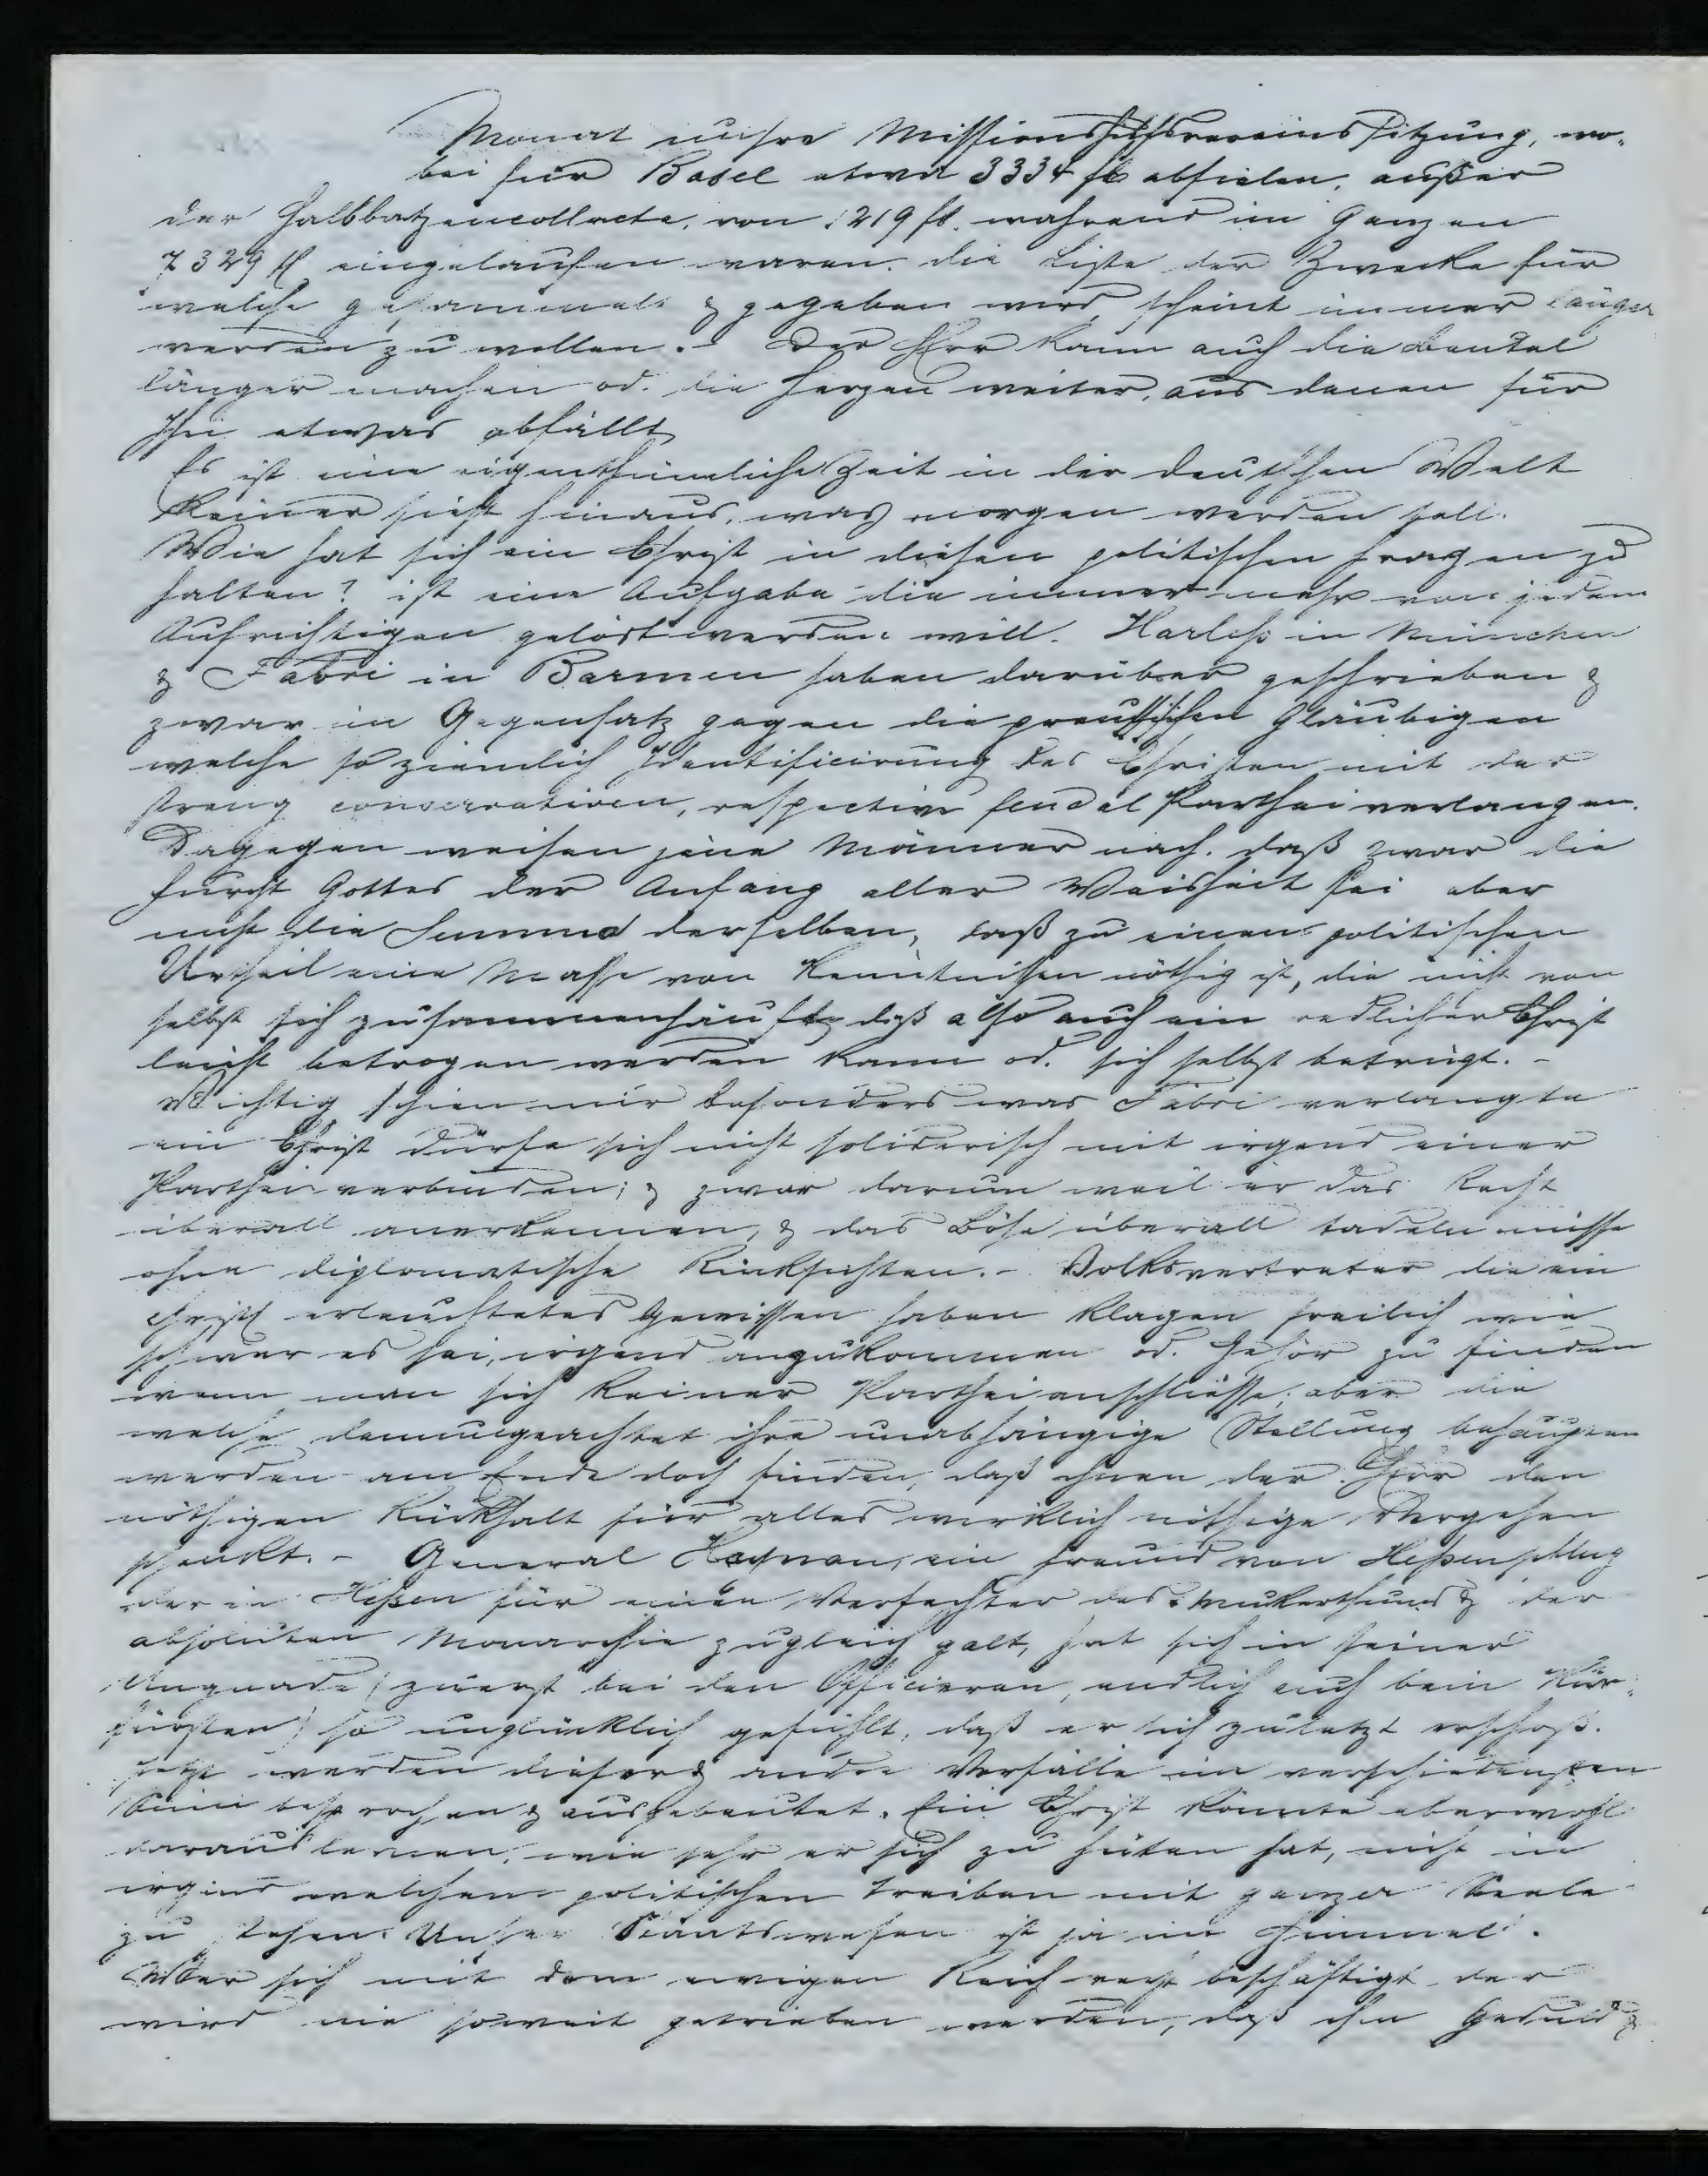 Monat unsre Missionshilfsvereinssitzung, wo-
bei für Basel etwa 3334 fl abfielen, außer
der Halbbatzencollecte, von 1219 fl. während im Ganzen
7329 fl eingelaufen waren. Die Liste der Zwecke für
welche gesammelt & gegeben wird, scheint immer länger
werden zu wollen. - Der Herr kann auch die Beutel
länger machen od. die Herzen weiter, aus denen für
Ihn etwas abfällt
Es ist eine eigenthümliche Zeit in der deutschen Welt
Keiner sieht hinaus, was morgen werden soll.
Wie hat sich ein Christ in diesen politischen Fragen zu
halten? ist eine Aufgabe die immer mehr von jedem
Aufrichtigen gelöst werden will. Harless in München
& Fabri in Barmen haben darüber geschrieben &
zwar im Gegensatz gegen die preussischen Gläubigen
welche so ziemlich Identificirung des Christen mit der
streng conservativen, respective feudal Parthei verlangen.
Dagegen weisen jene Männer nach, daß zwar die
Furcht Gottes der Anfang aller Weisheit sei aber
nicht die Summa derselben, daß zu einem politischen
Urtheil eine Masse von Kenntnissen nöthig ist, die nicht von
selbst sich zusammenhäuft, daß also auch ein redlicher Christ
leicht betrogen werden kann od. sich selbst betrügt. -
Wichtig schien mir besonders was Fabri verlangte
ein Christ dürfe sich nicht soliderisch mit irgend einer
Parthei verbinden; & zwar darum weil er das Recht
überall anerkennen, & das Böse überall tadeln müsse
ohne diplomatische Rücksichten. - Volksvertreter die ein
christl erleuchtetes Gewissen haben klagen freilich wie
schwer es sei, irgend anzukommen od. Gehör zu finden
wenn man sich keiner Parthei anschliesse; aber die
welche demungeachtet ihre unabhängige Stellung behaupten
werden am Ende doch finden, daß ihnen der Herr den
nöthigen Rückhalt für alles wirklich nöthige Vorgehen
schenkt. - General Haynau, ein Freund von Hessenpflug
der in Hessen für einen Verfechter des Mukerthums & der
absoluten Monarchie zugleich galt, hat sich in seiner
Ungnade (zuerst bei den Officieren, endlich auch beim Kur-
fürsten) so unglücklich gefühlt, daß er sich zuletzt erschoß.
Jetzt werden dieser & andre Vorfälle im verschiedensten
Sinn besprochen & ausgebeutet. Ein Christ könnte aber wohl
daraus lernen, wie sehr er sich zu hüten hat, nicht in
irgend welchem politischen Treiben mit ganzer Seele
zu stehen. Unser Staatswesen ist ja im Himmel.
Wer sich mit dem ewigen Reich recht beschäftigt der
wird nie soweit getrieben werden, daß ihm Geduld &